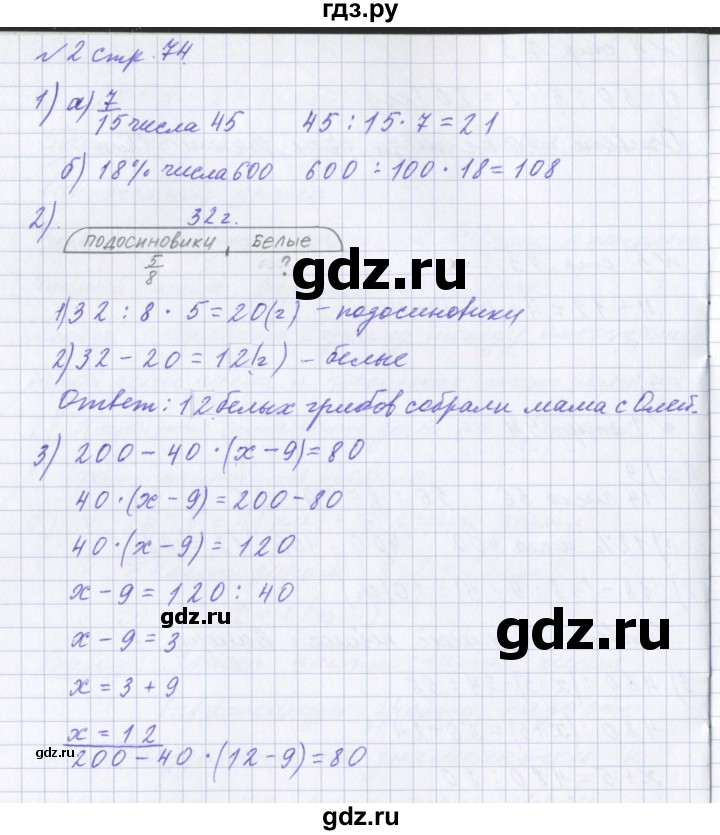 гдз.ру
№2 стр. 74.
1) а) 7/15 числа 45 45 : 15 · 7 = 21
б) 18% числа 600 600 : 100 · 18 = 108
2). 32 г.
подосиновики белые
5/8 ?
gdz.ru
1) 32 : 8 · 5 = 20(г) – подосиновики
2) 32 – 20 = 12(г) – белые
Ответ: 12 белых грибов собрали мама с Олей.
3) 200 – 40 · (х – 9) = 80
40 · (х – 9) = 200 – 80
40 · (х – 9) = 120
х – 9 = 120 : 40
gdz.ru
х – 9 = 3
gdz.ru
х = 3 + 9
х = 12
200 – 40 · (12 – 9) = 80
gdz.ru
gdz.ru